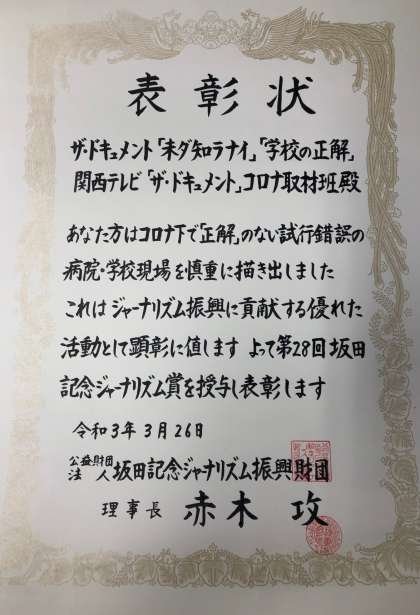 表彰状
ザ・ドキュメント「未ダ知ラナイ」「学校の正解」
関西テレビ「ザ・ドキュメント」コロナ取材班殿
あなた方はコロナ下で「正解」のない試行錯誤の
病院・学校現場を慎重に描き出しました
これはジャーナリズム振興に貢献する優れた
活動として顕彰に値します よって第28回坂田
記念ジャーナリズム賞を授与し表彰します
令和3年3月26日
公益財団法人 坂田記念ジャーナリズム振興財団
理事長 赤木 攻